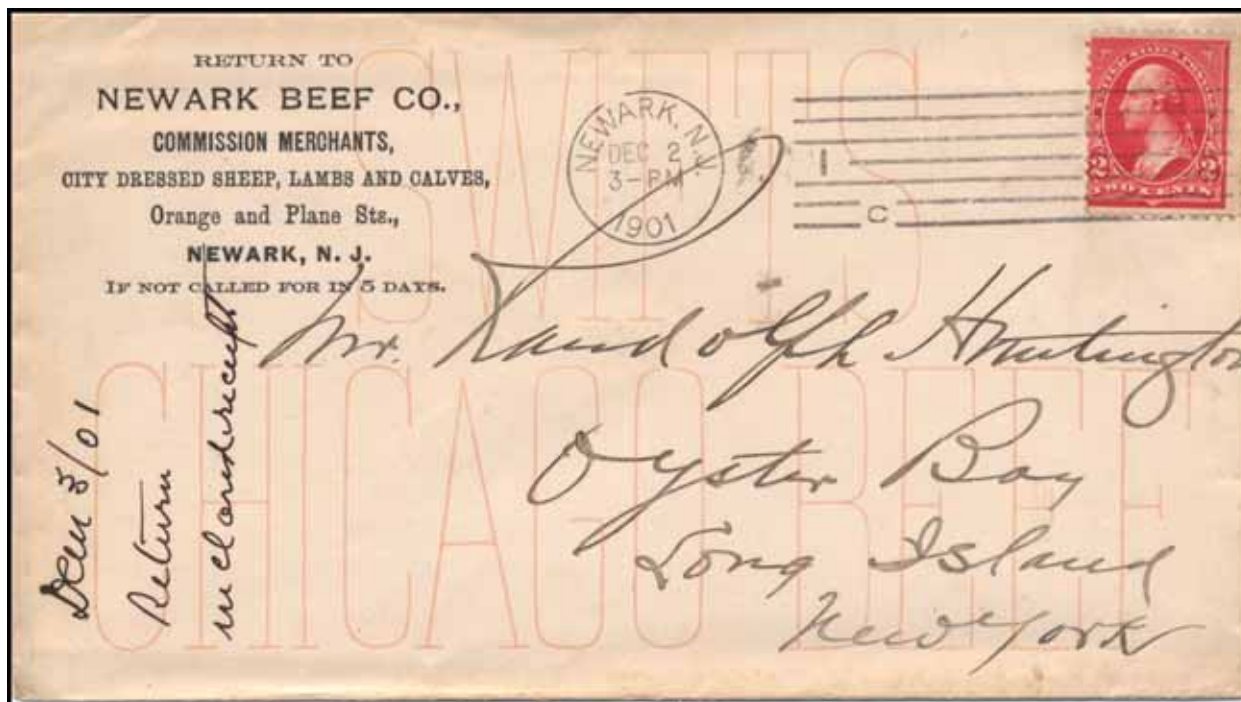 RETURN TO
NEWARK BEEF CO.,
COMMISSION MERCHANTS,
CITY DRESSED SHEEP, LAMBS AND CALVES,
Orange and Plane Sts.,
NEWARK, N. J.
IF NOT CALLED FOR IN 5 DAYS.
SWIFTS
CHICAGO BEEF
NEWARK, N.J.
DEC 2
3-PM
1901
1
C
UNITED STATES POSTAGE
2 2
TWO CENTS
Mr. Randolph Huntington
Oyster Bay
Long Island
New York
5/01
Return